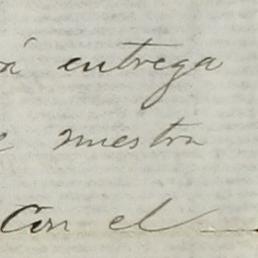 entrega
nuestra
Con el